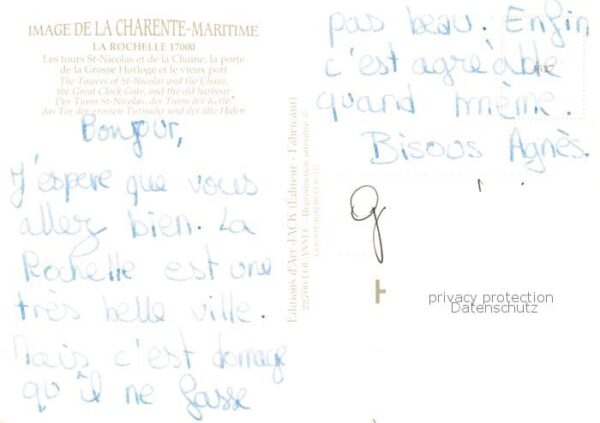 IMAGE DE LA CHARENTE-MARITIME
LA ROCHELLE 17000
Les tours St-Nicolas et de la Chaîne, la porte
de la Grosse Horloge et le vieux port
The Towers of St-Nicolas and the Chain,
the Great Clock Gate, and the old harbour
Der Turm St-Nicolas, der Turm der Kette,
das Tor der grossen Turmuhr und der alte Hafen
Bonjour,
J'espère que vous
allez bien. La
Rochelle est une
très belle ville.
Mais c'est domage
qu'il ne fasse
pas beau. Enfin
c'est agréable
quand même.
Bisous Agnès.
Editions d'Art JACK (Editeur - Fabricant)
22700 LOUANNEC - Reproduction interdite
privacy protection
Datenschutz